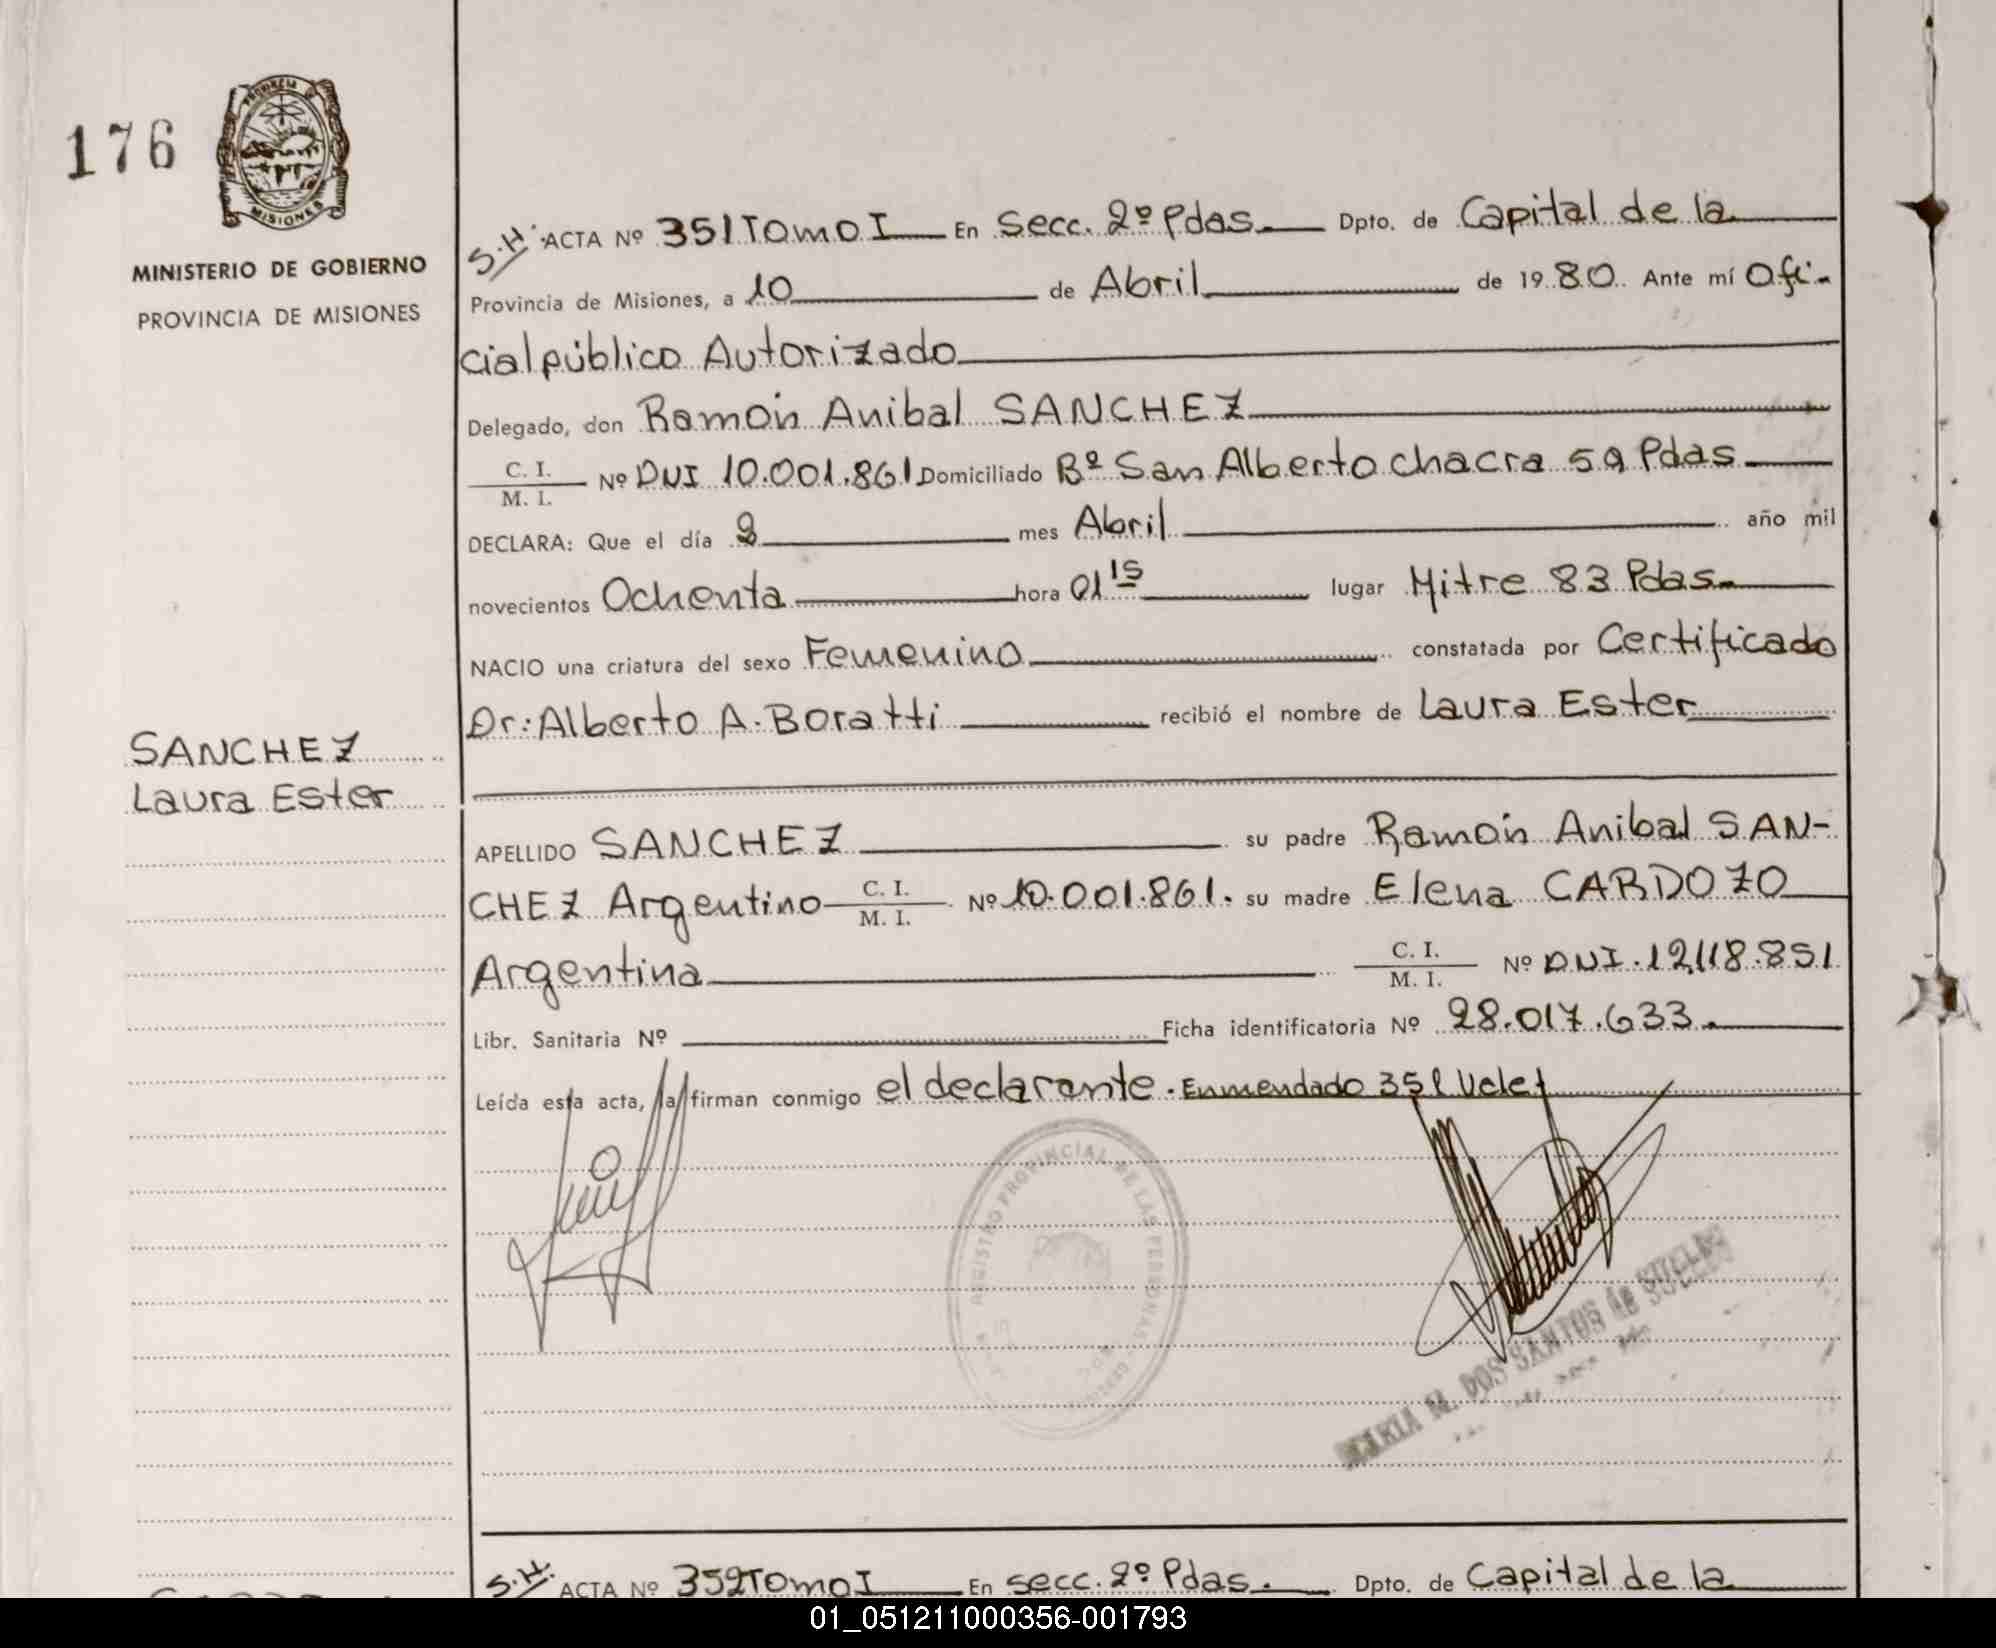 176
PROVINCIA DE
MISIONES
MINISTERIO DE GOBIERNO
PROVINCIA DE MISIONES
S.H. ACTA Nº 351 Tomo I En Secc. 2º Pdas. Dpto. de Capital de la
Provincia de Misiones, a 10 de Abril de 1980. Ante mí Ofi-
cial público Autorizado
Delegado, don Ramón Anibal SANCHEZ
C. I.
M. I. Nº DNI 10.001.861 Domiciliado Bº San Alberto chacra 59 Pdas
DECLARA: Que el día 2 mes Abril año mil
novecientos Ochenta hora 01 15 lugar Mitre 83 Pdas.
NACIO una criatura del sexo Femenino constatada por Certificado
Dr: Alberto A. Boratti recibió el nombre de Laura Ester
SANCHEZ
Laura Ester
APELLIDO SANCHEZ su padre Ramón Anibal SAN-
CHEZ Argentino C. I. M. I. Nº 10.001.861. su madre Elena CARDOZO
Argentina C. I. M. I. Nº DNI. 12.118.851
Libr. Sanitaria Nº Ficha identificatoria Nº 28.017.633.
Leída esta acta, la firman conmigo el declarante. Enmendado 351 Vale
REGISTRO PROVINCIAL DE LAS PERSONAS
MARIA M. DOS SANTOS de
S.H. ACTA Nº 352 Tomo I En secc. 2º Pdas. Dpto. de Capital de la
01_051211000356-001793